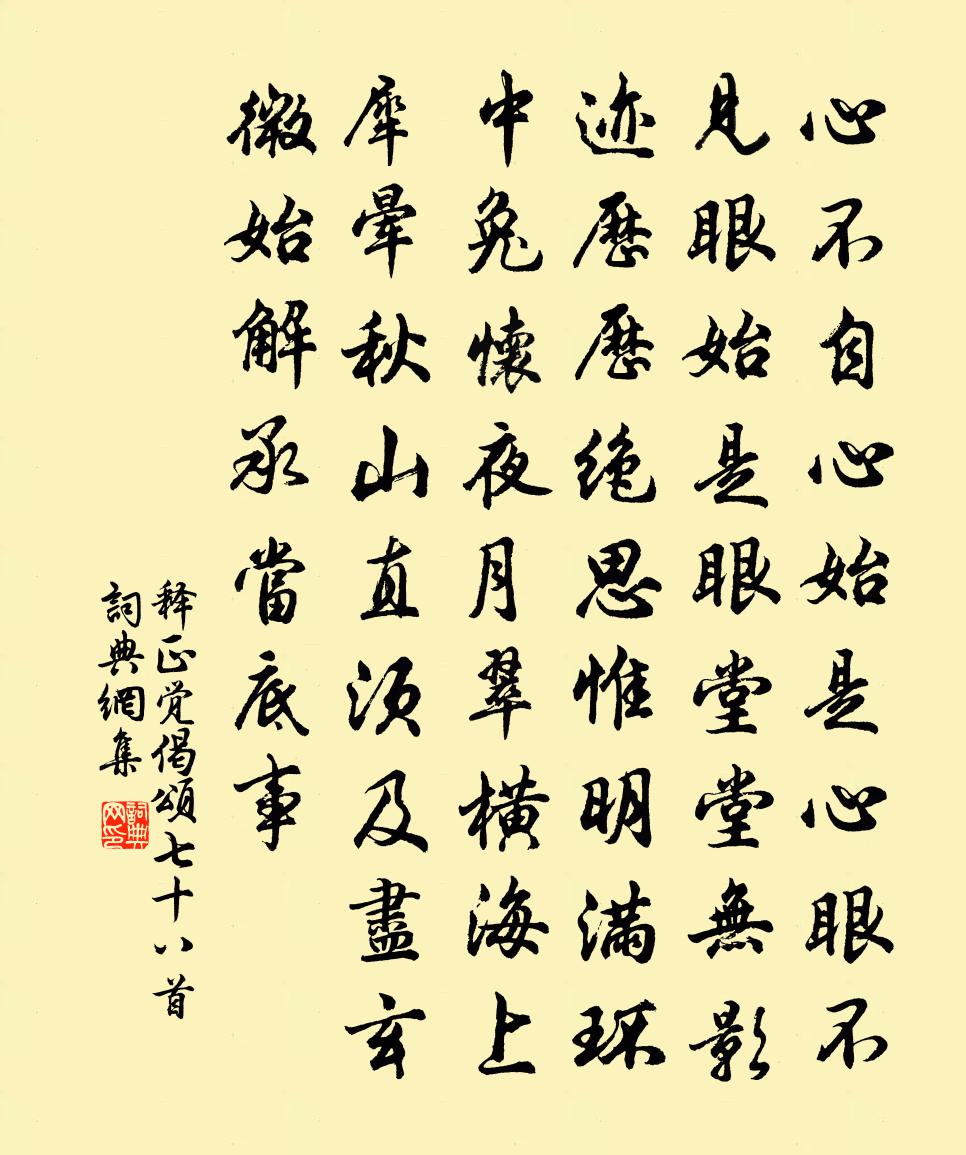 心不自心始是心眼不
見眼始是眼堂堂無影
迹歷歷絶思惟明滿环
中兔懷夜月翠橫海上
犀暈秋山直須及盡玄
微始解承當底事
释正觉偈頌七十八首
詞典網集
詞典网印